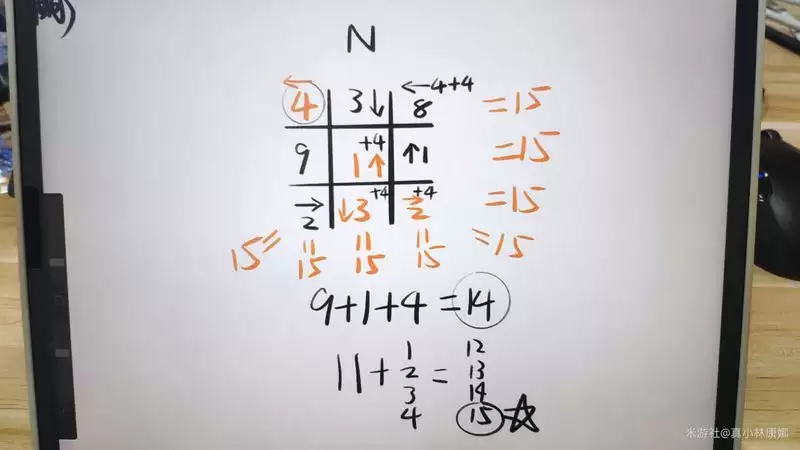 N
←4+4
4 3↓ 8 =15
+4
9 1↑ ↑1 =15
+4 +4
→2 ↓3 →2 =15
15= =15
|| || ||
15 15 15
9+1+4=14
11+1 =12
2 13
3 14
4 15☆
米游社@真小林康娜